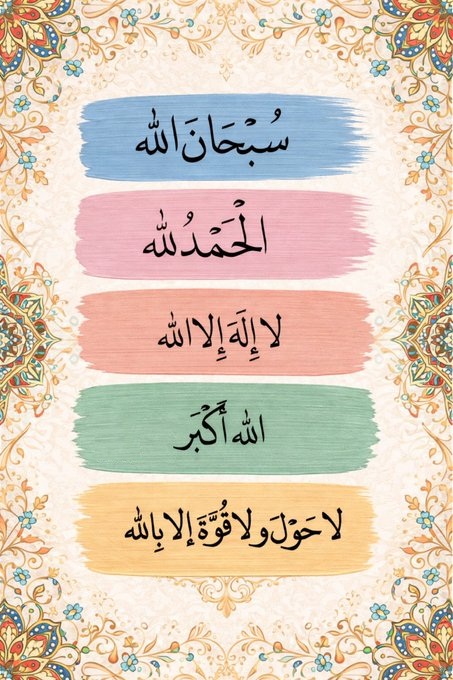 سُبْحَانَ الله
الْحَمْدُ لله
لا إِلَهَ إِلا الله
الله أَكْبَر
لا حَوْلَ ولا قُوَّةَ إلا بِالله